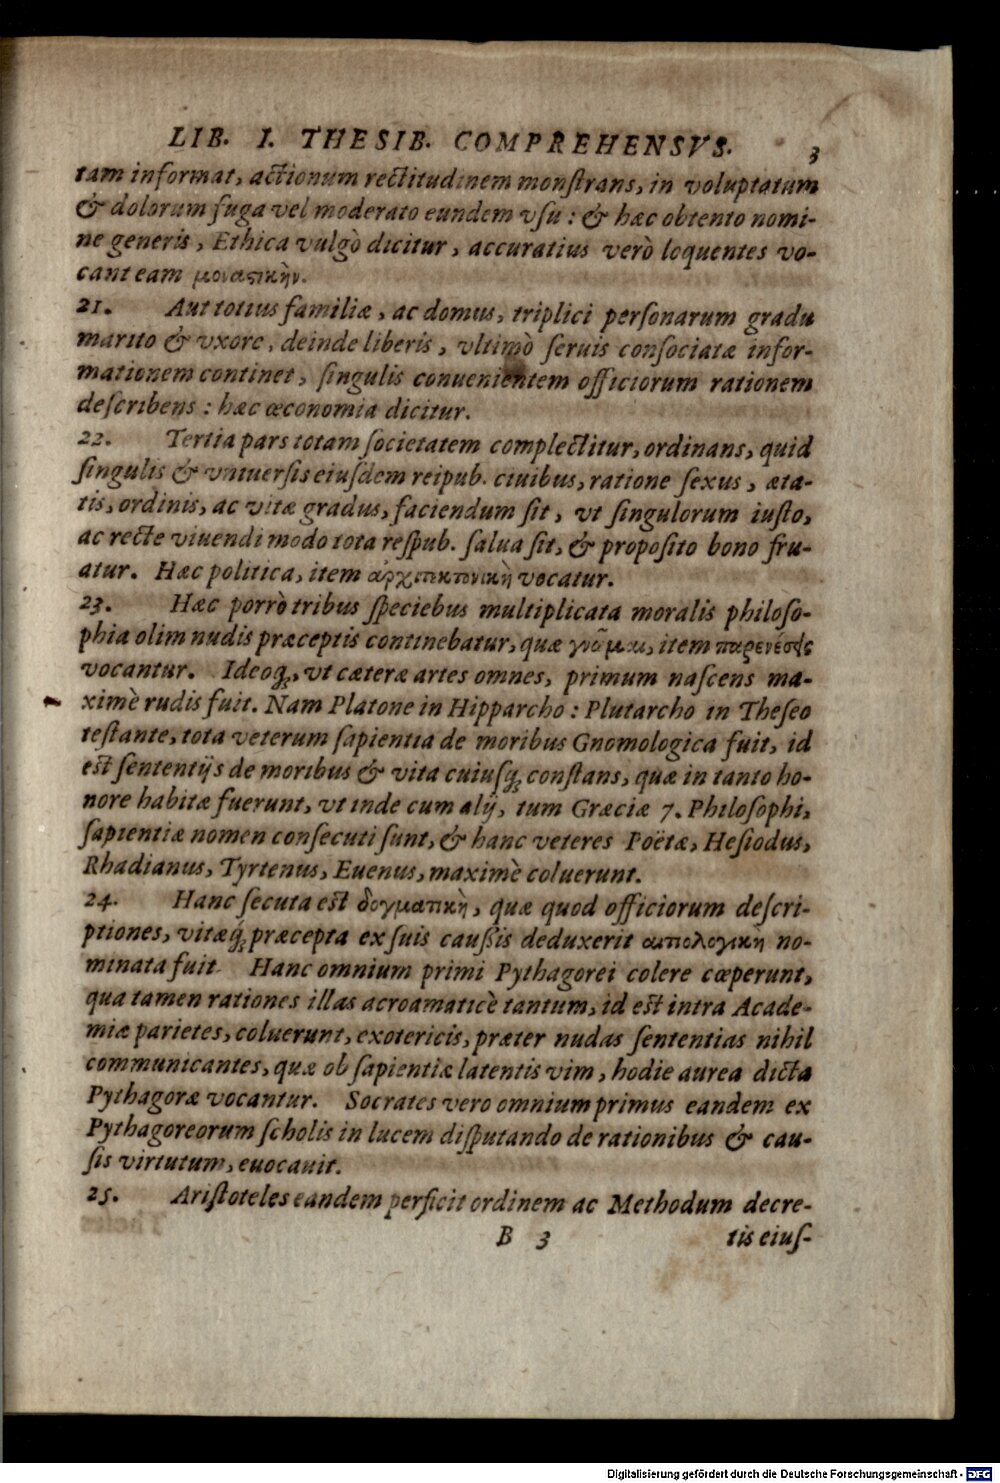 LIB. I. THESIB. COMPREHENSVS. 3
tam informat, actionum rectitudinem monſtrans, in voluptatum
& dolorum fuga vel moderato eundem vſu : & hæc obtento nomi-
ne generis, Ethica vulgò dicitur, accuratius verò loquentes vo-
cant eam μοναϛικὴν.
21. Aut totius familiæ, ac domus, triplici perſonarum gradu
marito & vxore, deinde liberis, vltimò ſeruis conſociatæ infor-
mationem continet, ſingulis conuenientem officiorum rationem
deſcribens : hæc œconomia dicitur.
22. Tertia pars totam ſocietatem complectitur, ordinans, quid
ſingulis & vniuerſis eiuſdem reipub. ciuibus, ratione ſexus, æta-
tis, ordinis, ac vitæ gradus, faciendum ſit, vt ſingulorum iuſto,
ac recte viuendi modo tota reſpub. ſalua ſit, & propoſito bono fru-
atur. Hæc politica, item ἀρχιτεκτονικὴ vocatur.
23. Hæc porrò tribus ſpeciebus multiplicata moralis philoſo-
phia olim nudis præceptis continebatur, quæ γνῶμαι, item παρενέσεις
vocantur. Ideoq́;, vt cæteræ artes omnes, primum naſcens ma-
ximè rudis fuit. Nam Platone in Hipparcho : Plutarcho in Theſeo
teſtante, tota veterum ſapientia de moribus Gnomologica fuit, id
eſt ſententijs de moribus & vita cuiuſq́; conſtans, quæ in tanto ho-
nore habitæ fuerunt, vt inde cum alij, tum Græciæ 7. Philoſophi,
ſapientiæ nomen conſecuti ſunt, & hanc veteres Poëtæ, Heſiodus,
Rhadianus, Tyrtenus, Euenus, maximè coluerunt.
24. Hanc ſecuta eſt δογματικὴ, quæ quod officiorum deſcri-
ptiones, vitæq́; præcepta ex ſuis cauſsis deduxerit αιτιολογικὴ no-
minata fuit. Hanc omnium primi Pythagorei colere cœperunt,
qua tamen rationes illas acroamaticè tantum, id eſt intra Acade-
miæ parietes, coluerunt, exotericis, præter nudas ſententias nihil
communicantes, quæ ob ſapientiæ latentis vim, hodie aurea dicta
Pythagoræ vocantur. Socrates vero omnium primus eandem ex
Pythagoreorum ſcholis in lucem diſputando de rationibus & cau-
ſis virtutum, euocauit.
25. Ariſtoteles eandem perficit ordinem ac Methodum decre-
B 3 tis eiuſ-
Digitalisierung gefördert durch die Deutsche Forschungsgemeinschaft - DFG